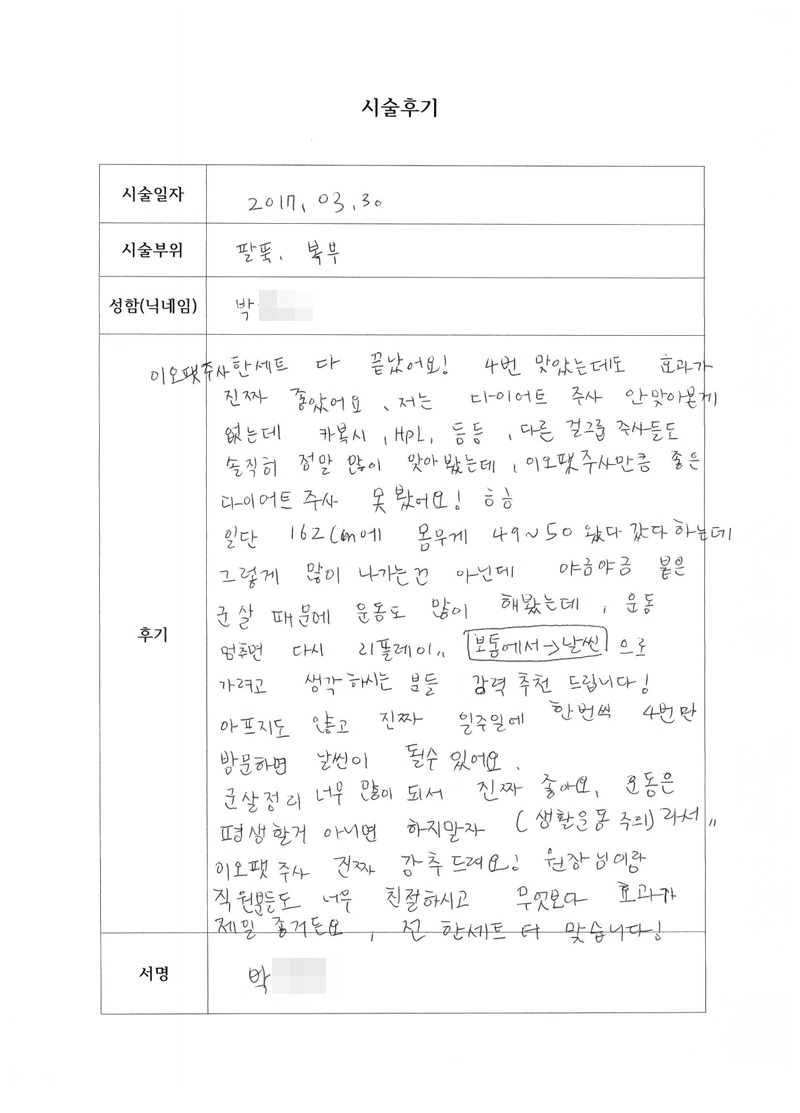 시술후기
시술일자 2017. 03. 30
시술부위 팔뚝. 복부
성함(닉네임) 박
이오팻주사한세트 다 끝났어요! 4번 맞았는데도 효과가
진짜 좋았어요, 저는 다이어트 주사 안맞아본게
없는데 카복시, HPL, 등등, 다른 걸그룹 주사들도
솔직히 정말 많이 맞아봤는데, 이오팻주사만큼 좋은
다이어트 주사 못봤어요! ㅎㅎ
일단 162cm에 몸무게 49~50 왔다 갔다 하는데
그렇게 많이 나가는건 아닌데 야금야금 붙은
후기
군살 때문에 운동도 많이 해봤는데, 운동
멈추면 다시 리플레이,, 보통에서→날씬 으로
가려고 생각하시는 분들 강력 추천 드립니다!
아프지도 않고 진짜 일주일에 한번씩 4번만
방문하면 날씬이 될수 있어요.
군살정리 너무 많이 되서 진짜 좋아요, 운동은
평생할거 아니면 하지말자 (생활운동 주의) 라서,,
이오팻주사 진짜 강추드려요! 원장님이랑
직원분들도 너무 친절하시고 무엇보다 효과가
제일 좋거든요, 전 한세트 더 맞습니다!
서명 박